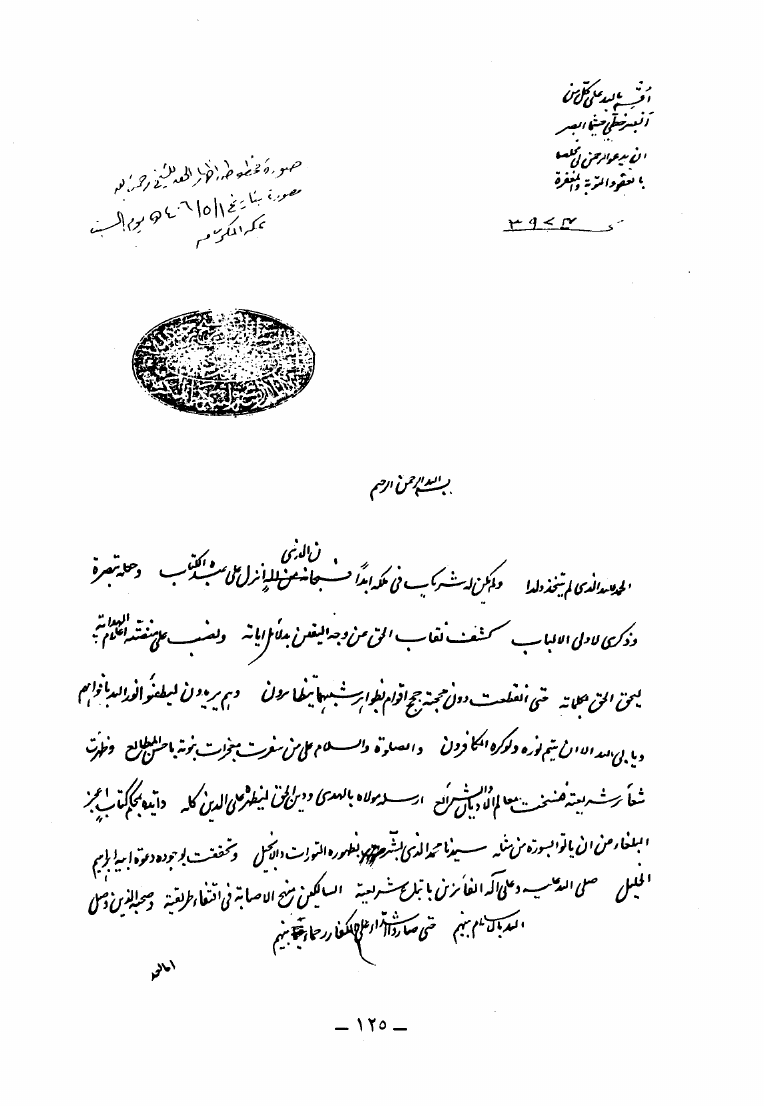 أقسم بالله على كل من
أبصر خطي حيثما أبصر
ان يدعو الرحمن لي مخلصا
بالعفو والتوبة والمغفرة
صورة مخطوطة اظهار الحق للشيخ رحمت الله
مصورة بتاريخ ١/٥/١٤٠٦هـ يوم السبت
بمكة المكرمة
بسم الله الرحمن الرحيم
الحمد لله الذي لم يتخذ ولدا ولم يكن له شريك في ملكه ابدًا فسبحانه من اله أنزل على عبده الكتاب وجعله تبصرة
وذكرى لاولي الالباب كشف نقاب الحق من وجه اليقين بدلائل اياته ونصب على منصته اعلام الهداية
ليحق الحق بكلماته حتى انقطعت دون حجته حجج اقوام بظواهر شبهها يتظاهرون وهم يريدون ليطفئوا نور الله بافواههم
ويابى الله الا ان يتم نوره ولو كره الكافرون والصلوة والسلام على من سفرت معجزات نبوته باحسن المطالع وظهرت
شعائر شريعته فنسخت معالم الاديان والشرائع ارسله مولاه بالهدى ودين الحق ليظهره على الدين كله وايده بمحكم كتاب أعجز
البلغاء من ان ياتوا بسورة من مثله سيدنا محمد الذي بشر بظهوره التورات والانجيل وتحققت بوجوده دعوة ابيه ابراهيم
الخليل صلى الله عليه وعلى آله الفائزين باتباع شريعته السالكين منهج الاصابة في اقتفاء طريقته وصحبه الذين وصل
الله بالاسلام بينهم حتى صاروا اشداء على الكفار رحماء بينهم
اما بعد
— ١٢٥ —